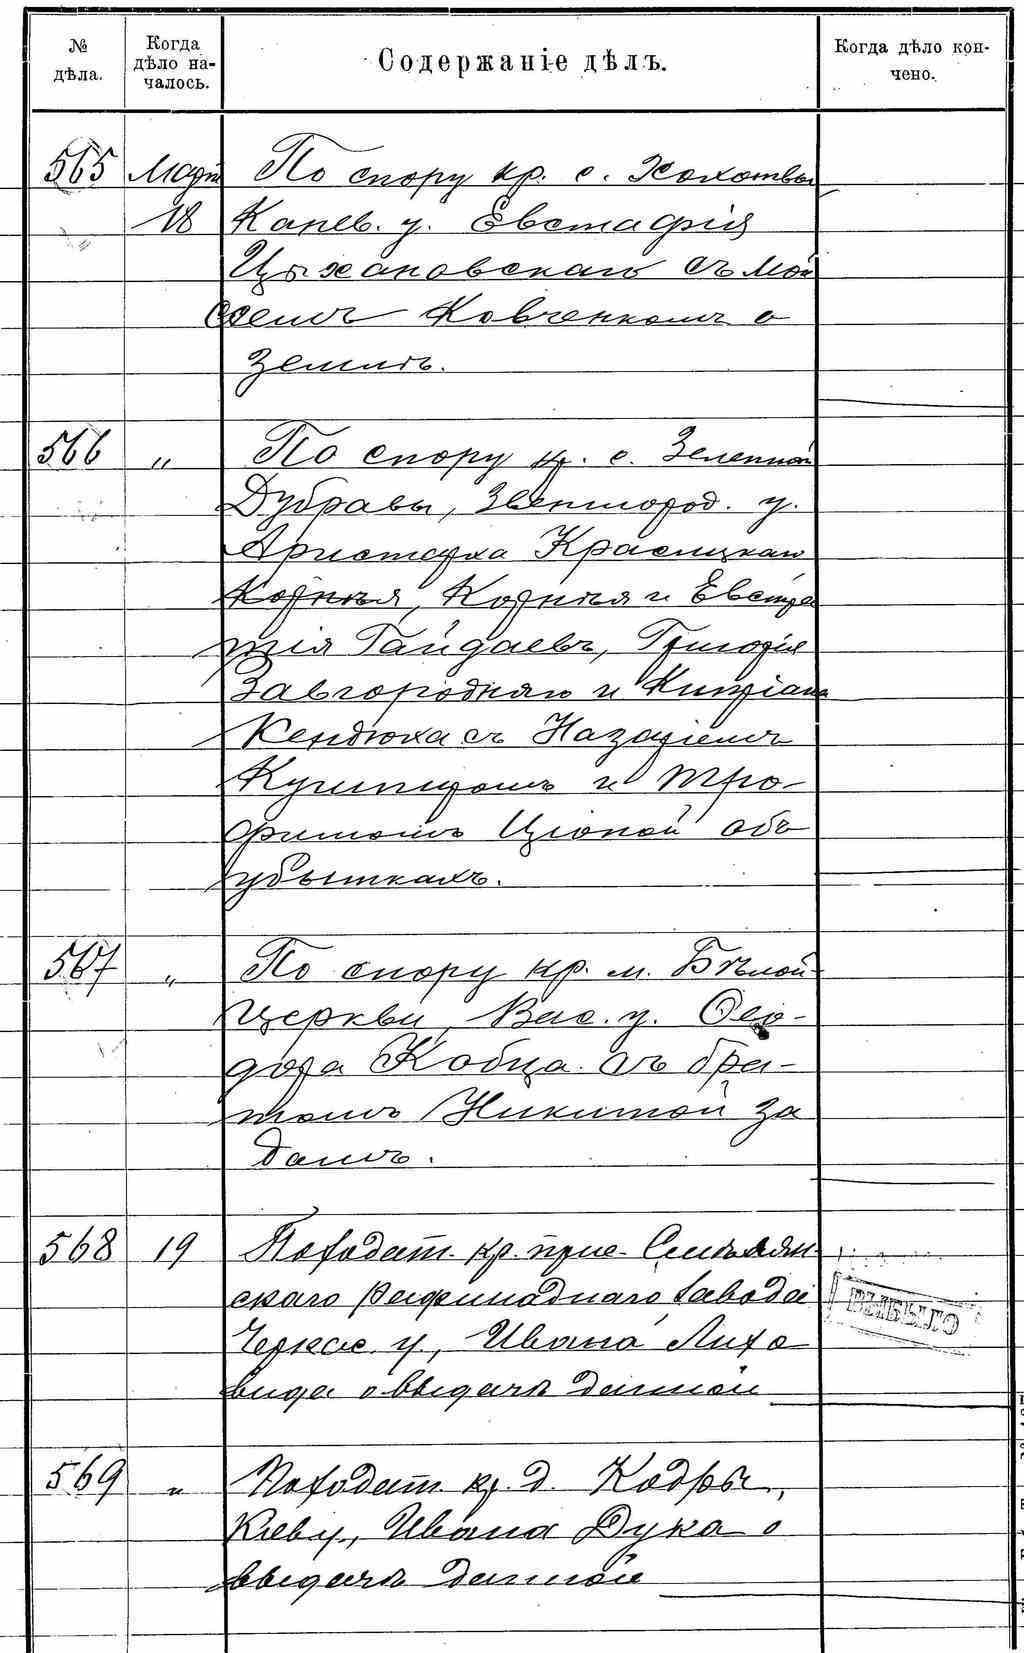 № дѣла.
Когда дѣло началось.
Содержаніе дѣлъ.
Когда дѣло кончено.
565 Март По спору кр. с. Хохотвы
18 Канев. у. Евстафія
Цыхановскаго съ Мой
сеемъ Ковченкомъ о
землѣ.
566 " По спору кр. с. Зеленной
Дубравы, Звенигород. у.
Аристарха Красицкаго
Корнѣя, Корнѣя и Евстра
тія Гайдаевъ, Григорія
Завгородняго и Кипріана
Кендюха съ Назаріемъ
Кушниромъ и Тро-
фимомъ Цюпой объ
убыткахъ.
567 " По спору кр. м. Бѣлой-
Церкви, Вас. у. Ѳео-
дора Кобца съ бра-
томъ Никитой за
домъ.
568 19 По ходат. кр. прис.
скаго рафинаднаго завода
Черкас. у., Ивана Лихо
вида о выдачѣ данной
ВЫБЫЛО
569 " По ходат. кр. д. Кодры,
Кіев у., Ивана Дука о
выдачѣ данной